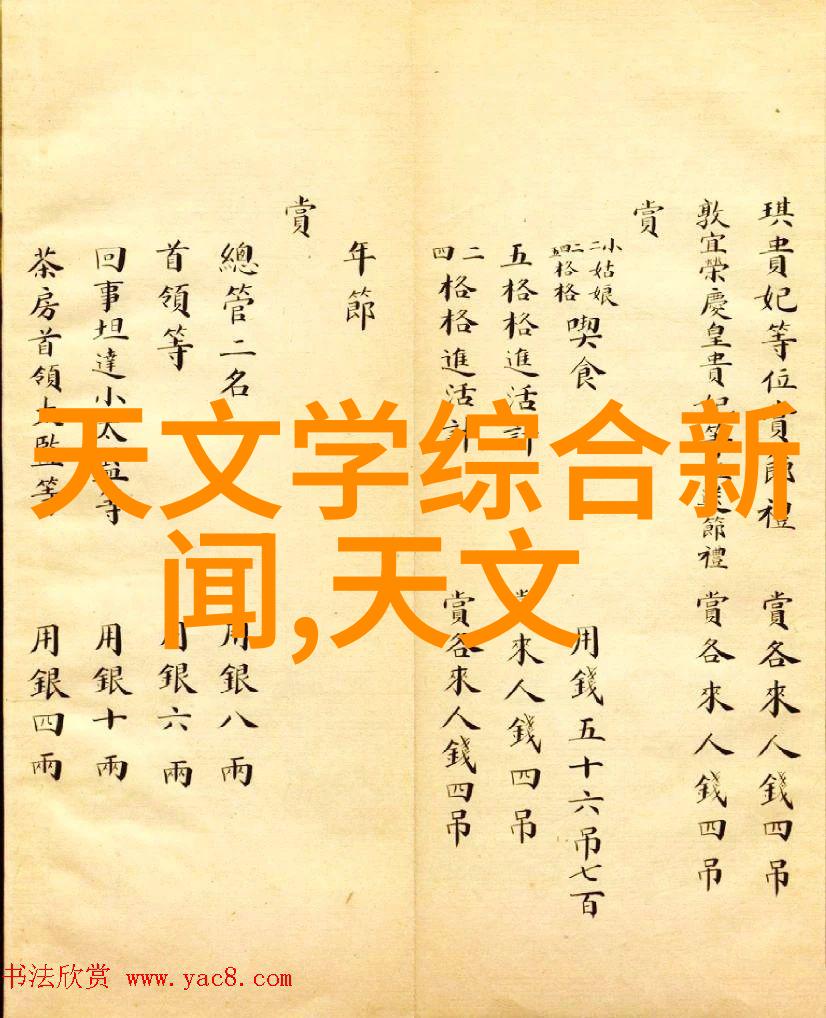 琪貴妃等位賞節禮 賞各來人錢四吊
敦宜榮慶皇貴妃等位送節禮 賞各來人錢四吊
賞
小姑娘
二
二格格
四格格
喫食 用錢五十六吊七百
五格格進活計 賞來人錢四吊
二
四
格格進活計 賞各來人錢四吊
年節
賞
總管二名 用銀八兩
首領等 用銀六兩
回事坦達小太監等 用銀十兩
茶房首領太監等 用銀四兩
天文学综合新
闻,天文
书法欣赏 www.yac8.com